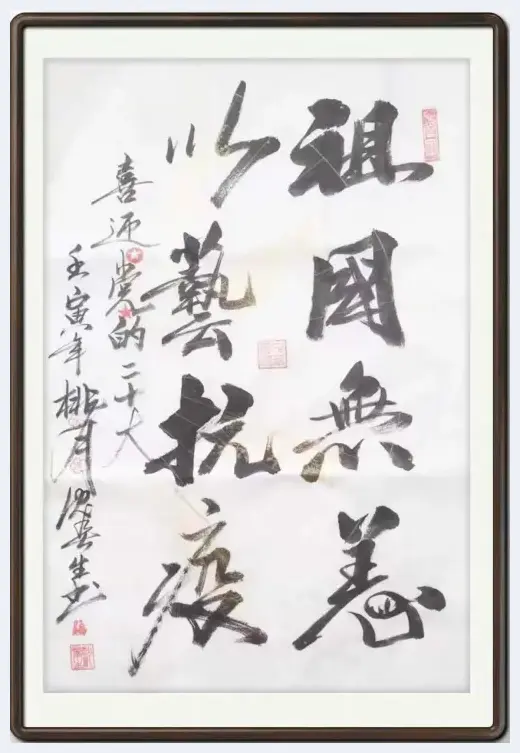 祖國無恙
以藝抗疫
喜迎党的二十大
壬寅年桃月
生书